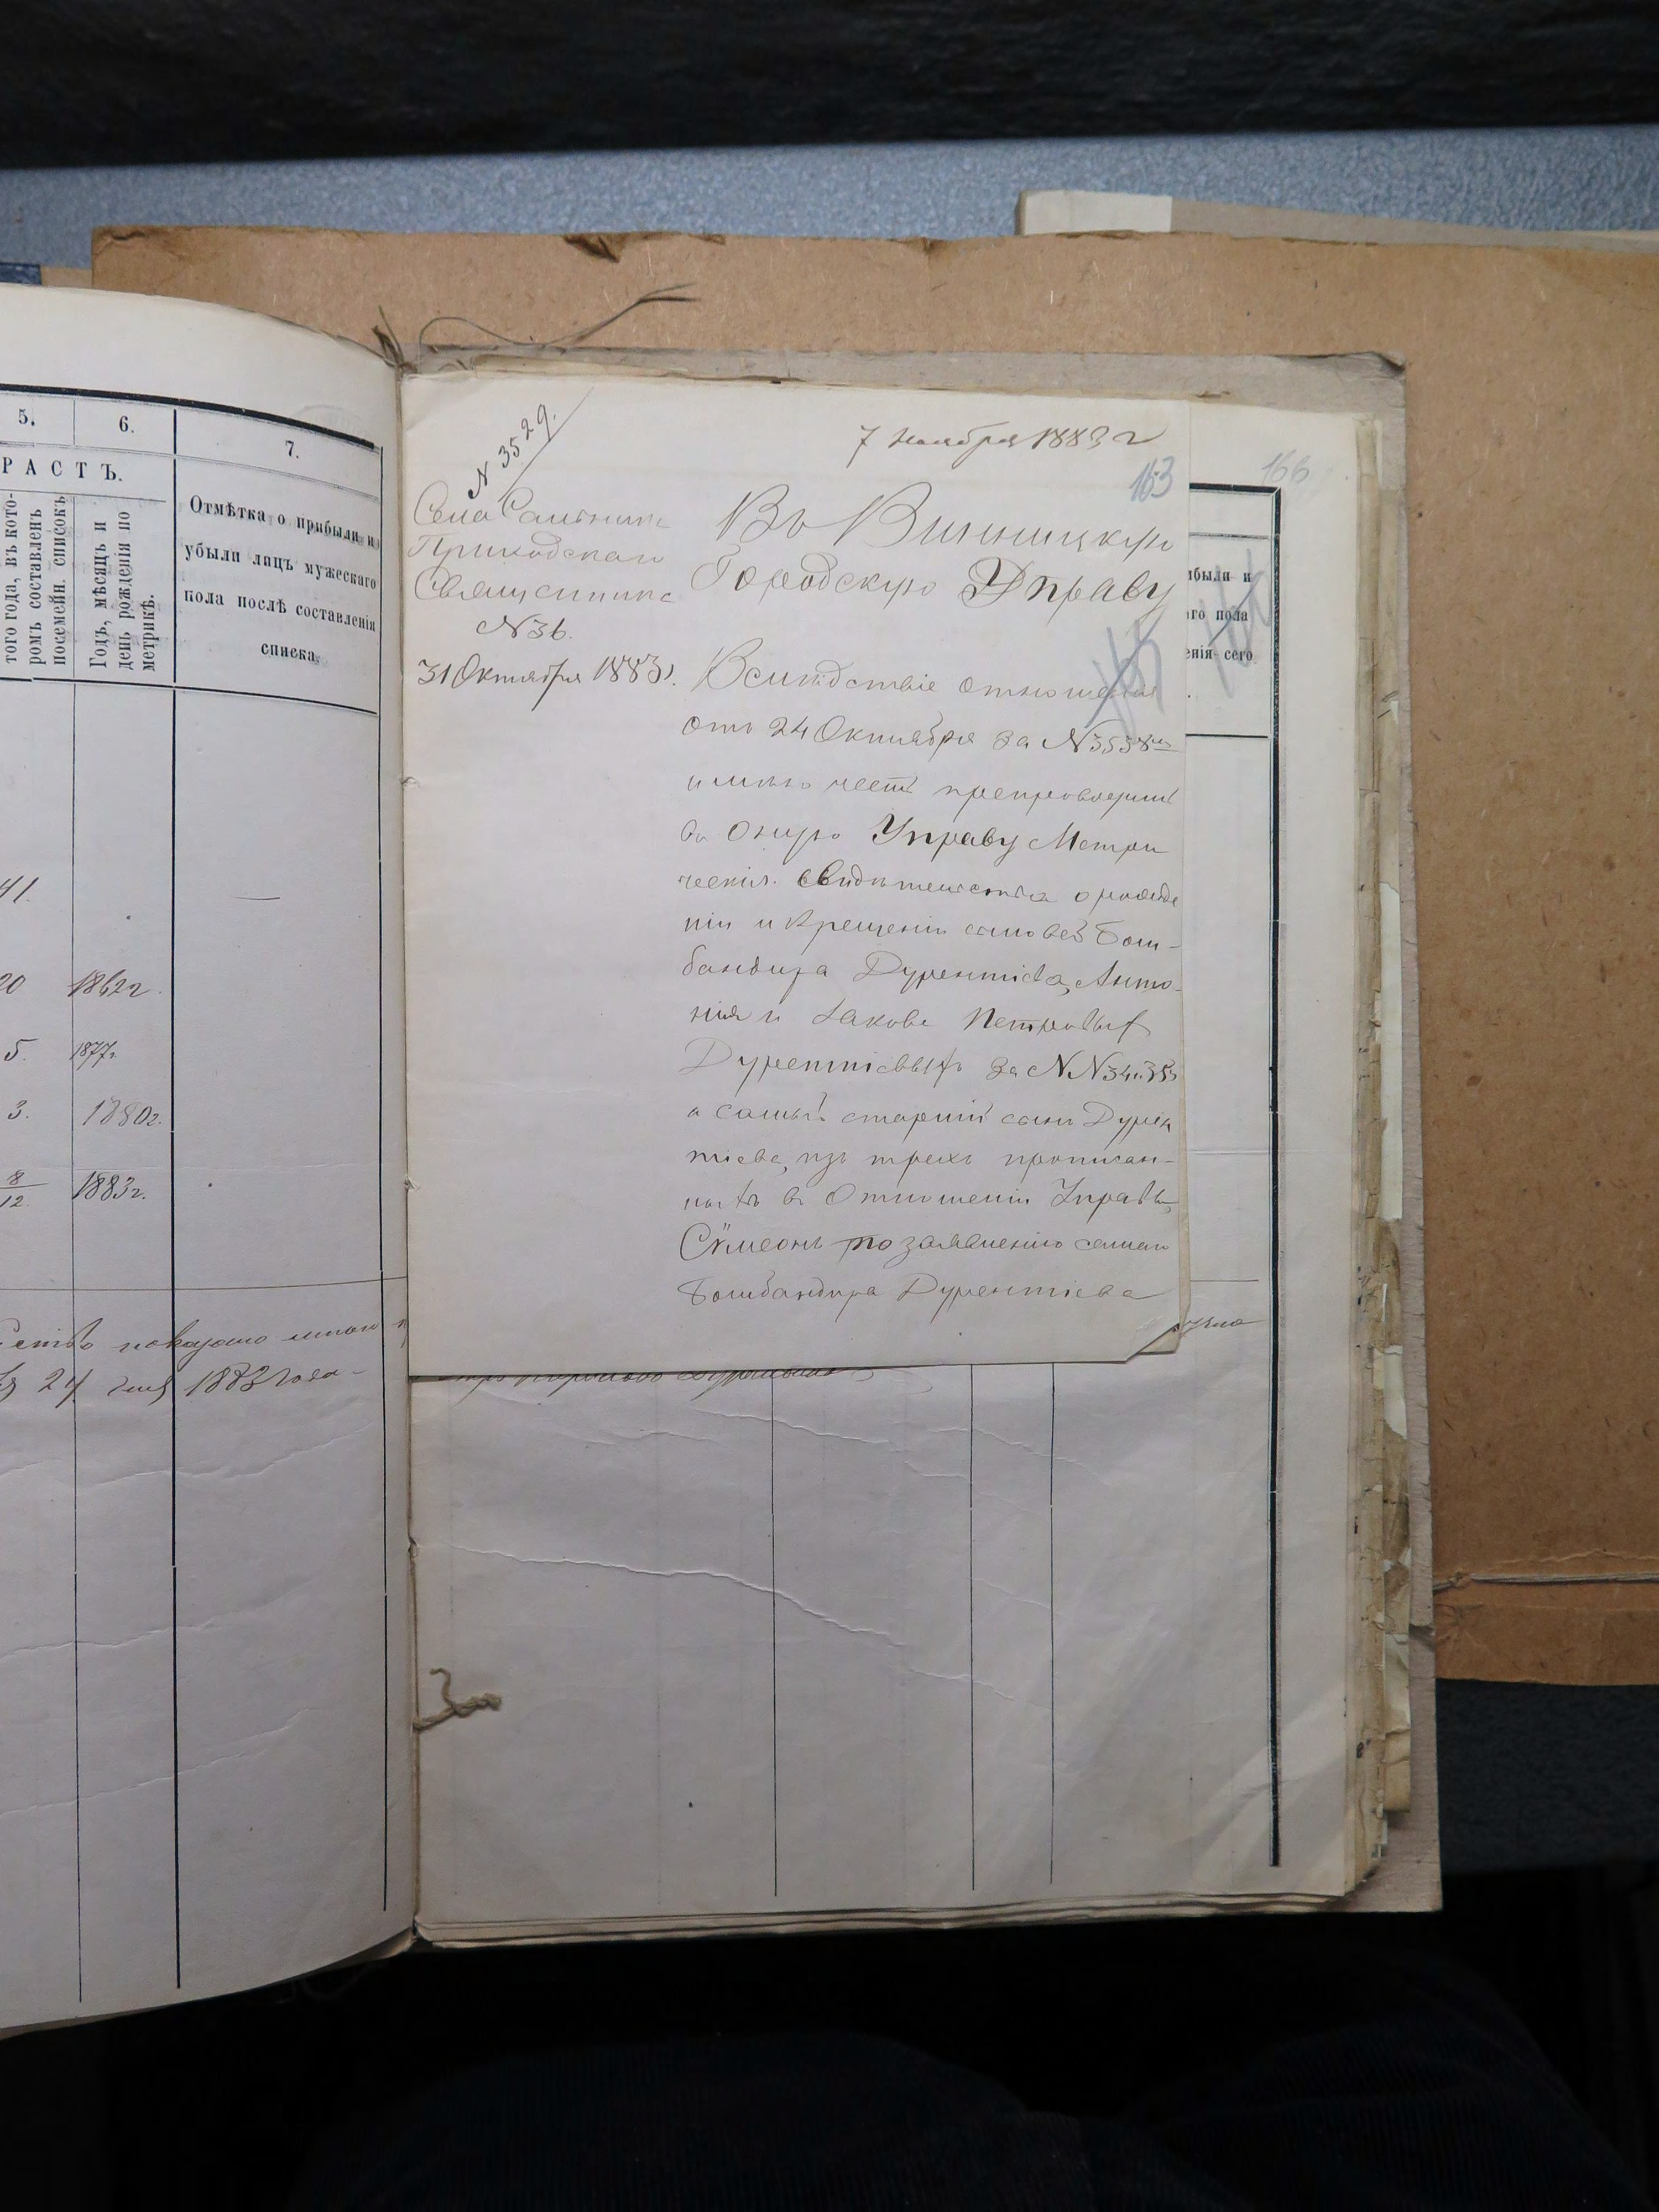 5.
6.
7.
РАСТЪ.
того года, въ кото-
ромъ составленъ
посемейн. списокъ
Годъ, мѣсяцъ и
день рожденія по
метрикѣ.
Отмѣтка о прибыли и
убыли лицъ мужескаго
пола послѣ составленія
списка.
41.
20 1862г.
5. 1877г.
3. 1880г.
8/12 1883г.
показано
24 1883 года
N 3529.
7 Ноября 1883 г
163
166
Села Сальника
Приходскаго
Священника
N 36.
31 Октября 1883 г.
Въ Винницкую
Городскую Управу
Вслѣдствіе отношенія
отъ 24 Октября за N 3538мъ
имѣю честь препроводить
въ оную Управу Метри
ческія свидѣтельства о рожде
ніи и крещеніи сыновей Бом-
бандира Дурентіева, Анто-
нія и Іакова Петровыхъ
Дурентіевыхъ за NN 34 и 35
а самый старшій сынъ Дурен
тіева, изъ трехъ прописан-
ныхъ въ Отношеніи Управы,
Сѵмеонъ по заявленію самаго
Бомбандира Дурентіева
ибыли и
аго пола
енія сего